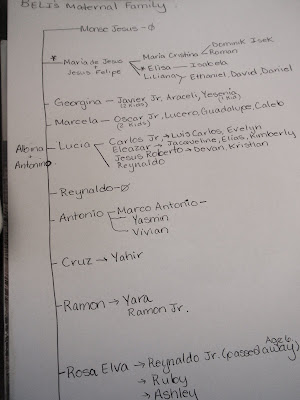 BELI'S Maternal Family
Monse Jesus - Ø
* Maria de Jesus
Jesus Felipe
Maria Cristina → Dominik Isek
Roman
* Elisa → Isabela
Liliana → Ethaniel, David, Daniel
Georgina - Javier Jr, Araceli, Yesenia
(2 kids) (1 kid)
Marcela - Oscar Jr, Lucero, Guadalupe, Caleb
(2 kids)
Albina
+
Antonino
Lucia
Carlos Jr → Luis Carlos, Evelyn
Eleazar → Jacqueline, Elias, Kimberly
Jesus Roberto → Devan, Kristian
Reynaldo
Reynaldo - Ø
Antonio - Marco Antonio -
Yasmin
Vivian
Cruz → Yahir
Ramon → Yara
Ramon Jr.
Age 6
Rosa Elva → Reynaldo Jr. (passed away)
→ Ruby
→ Ashley